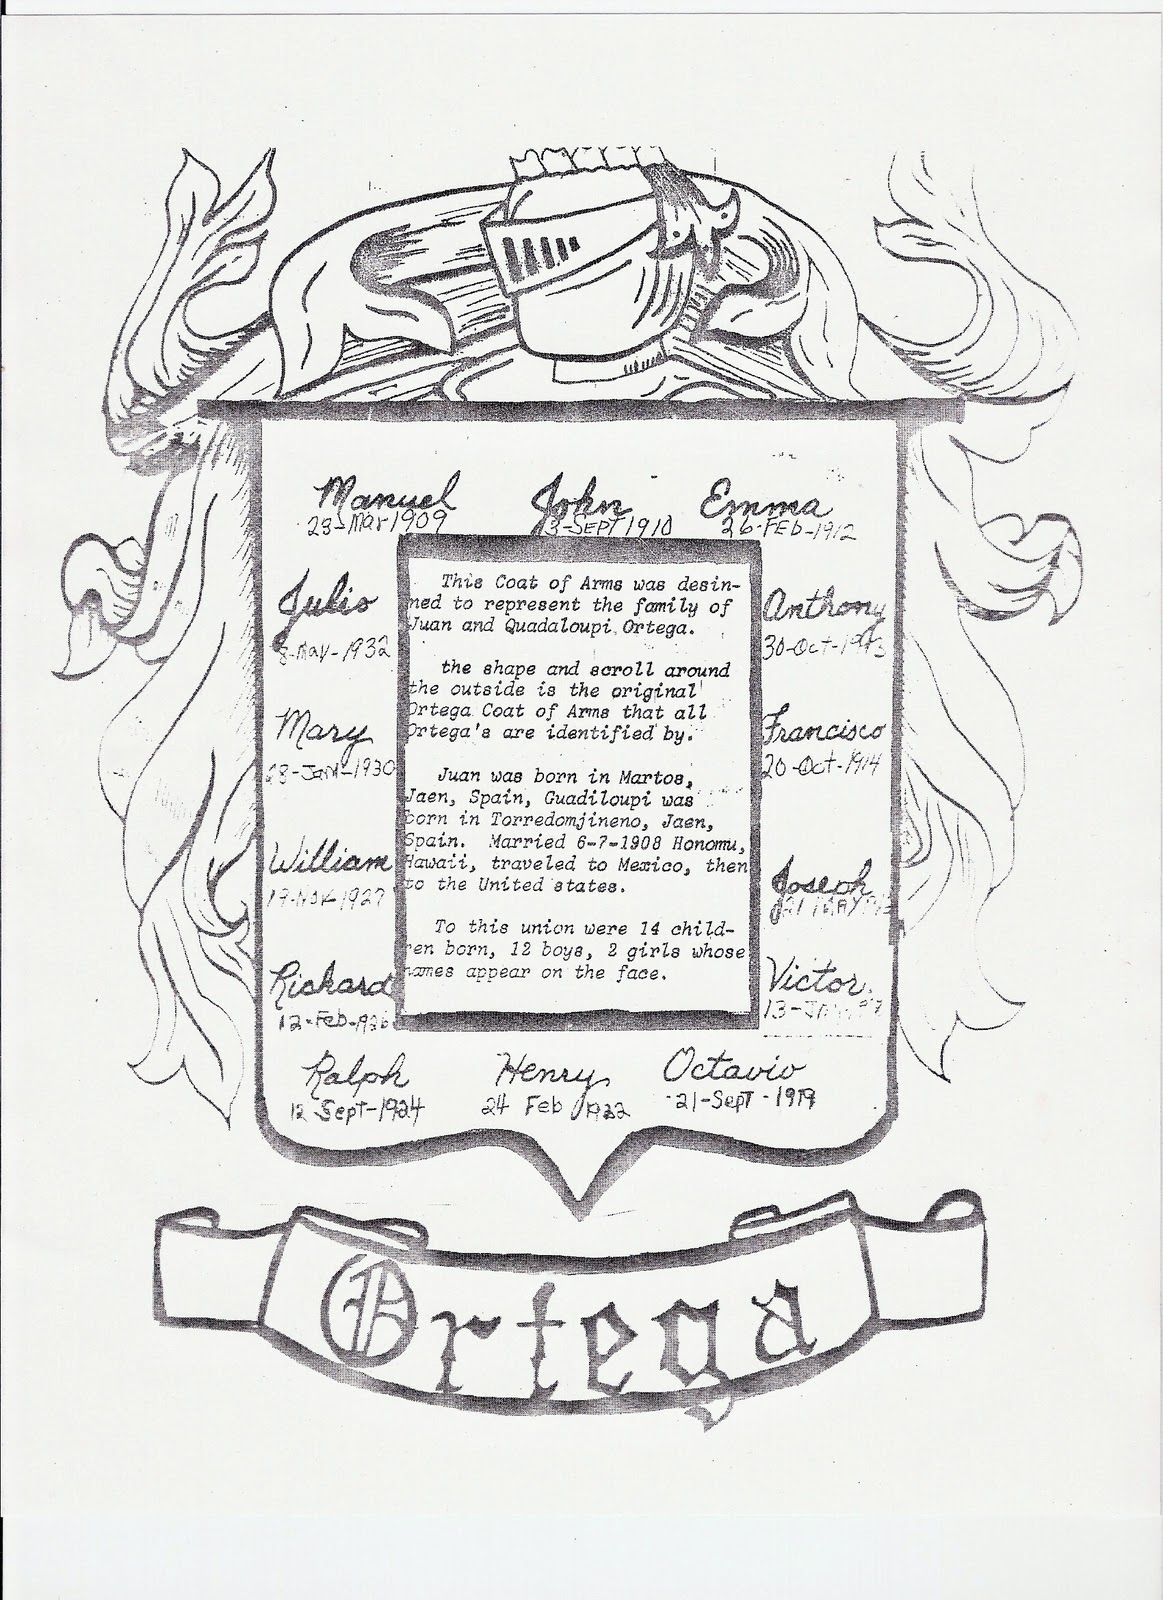 Manuel
23-Mar 1909
John
3-SEPT 1910
Emma
26-FEB-1912
Julio
8-May-1932
Anthony
30-Oct-1913
Mary
28-Jan-1930
Francisco
20-Oct-1914
William
1927
Joseph
21 MAY
Richard
12-Feb-1926
Victor
13-JAN
Ralph
12 Sept-1924
Henry
24 Feb 1922
Octavio
21-Sept-1919
This Coat of Arms was desin-
ned to represent the family of
Juan and Quadaloupi Ortega.
the shape and scroll around
the outside is the original
Ortega Coat of Arms that all
Ortega's are identified by.
Juan was born in Martos,
Jaen, Spain, Guadiloupi was
born in Torredomjineno, Jaen,
Spain. Married 6-7-1908 Honomu,
Hawaii, traveled to Mexico, then
to the United states.
To this union were 14 child-
ren born, 12 boys, 2 girls whose
names appear on the face.
Ortega